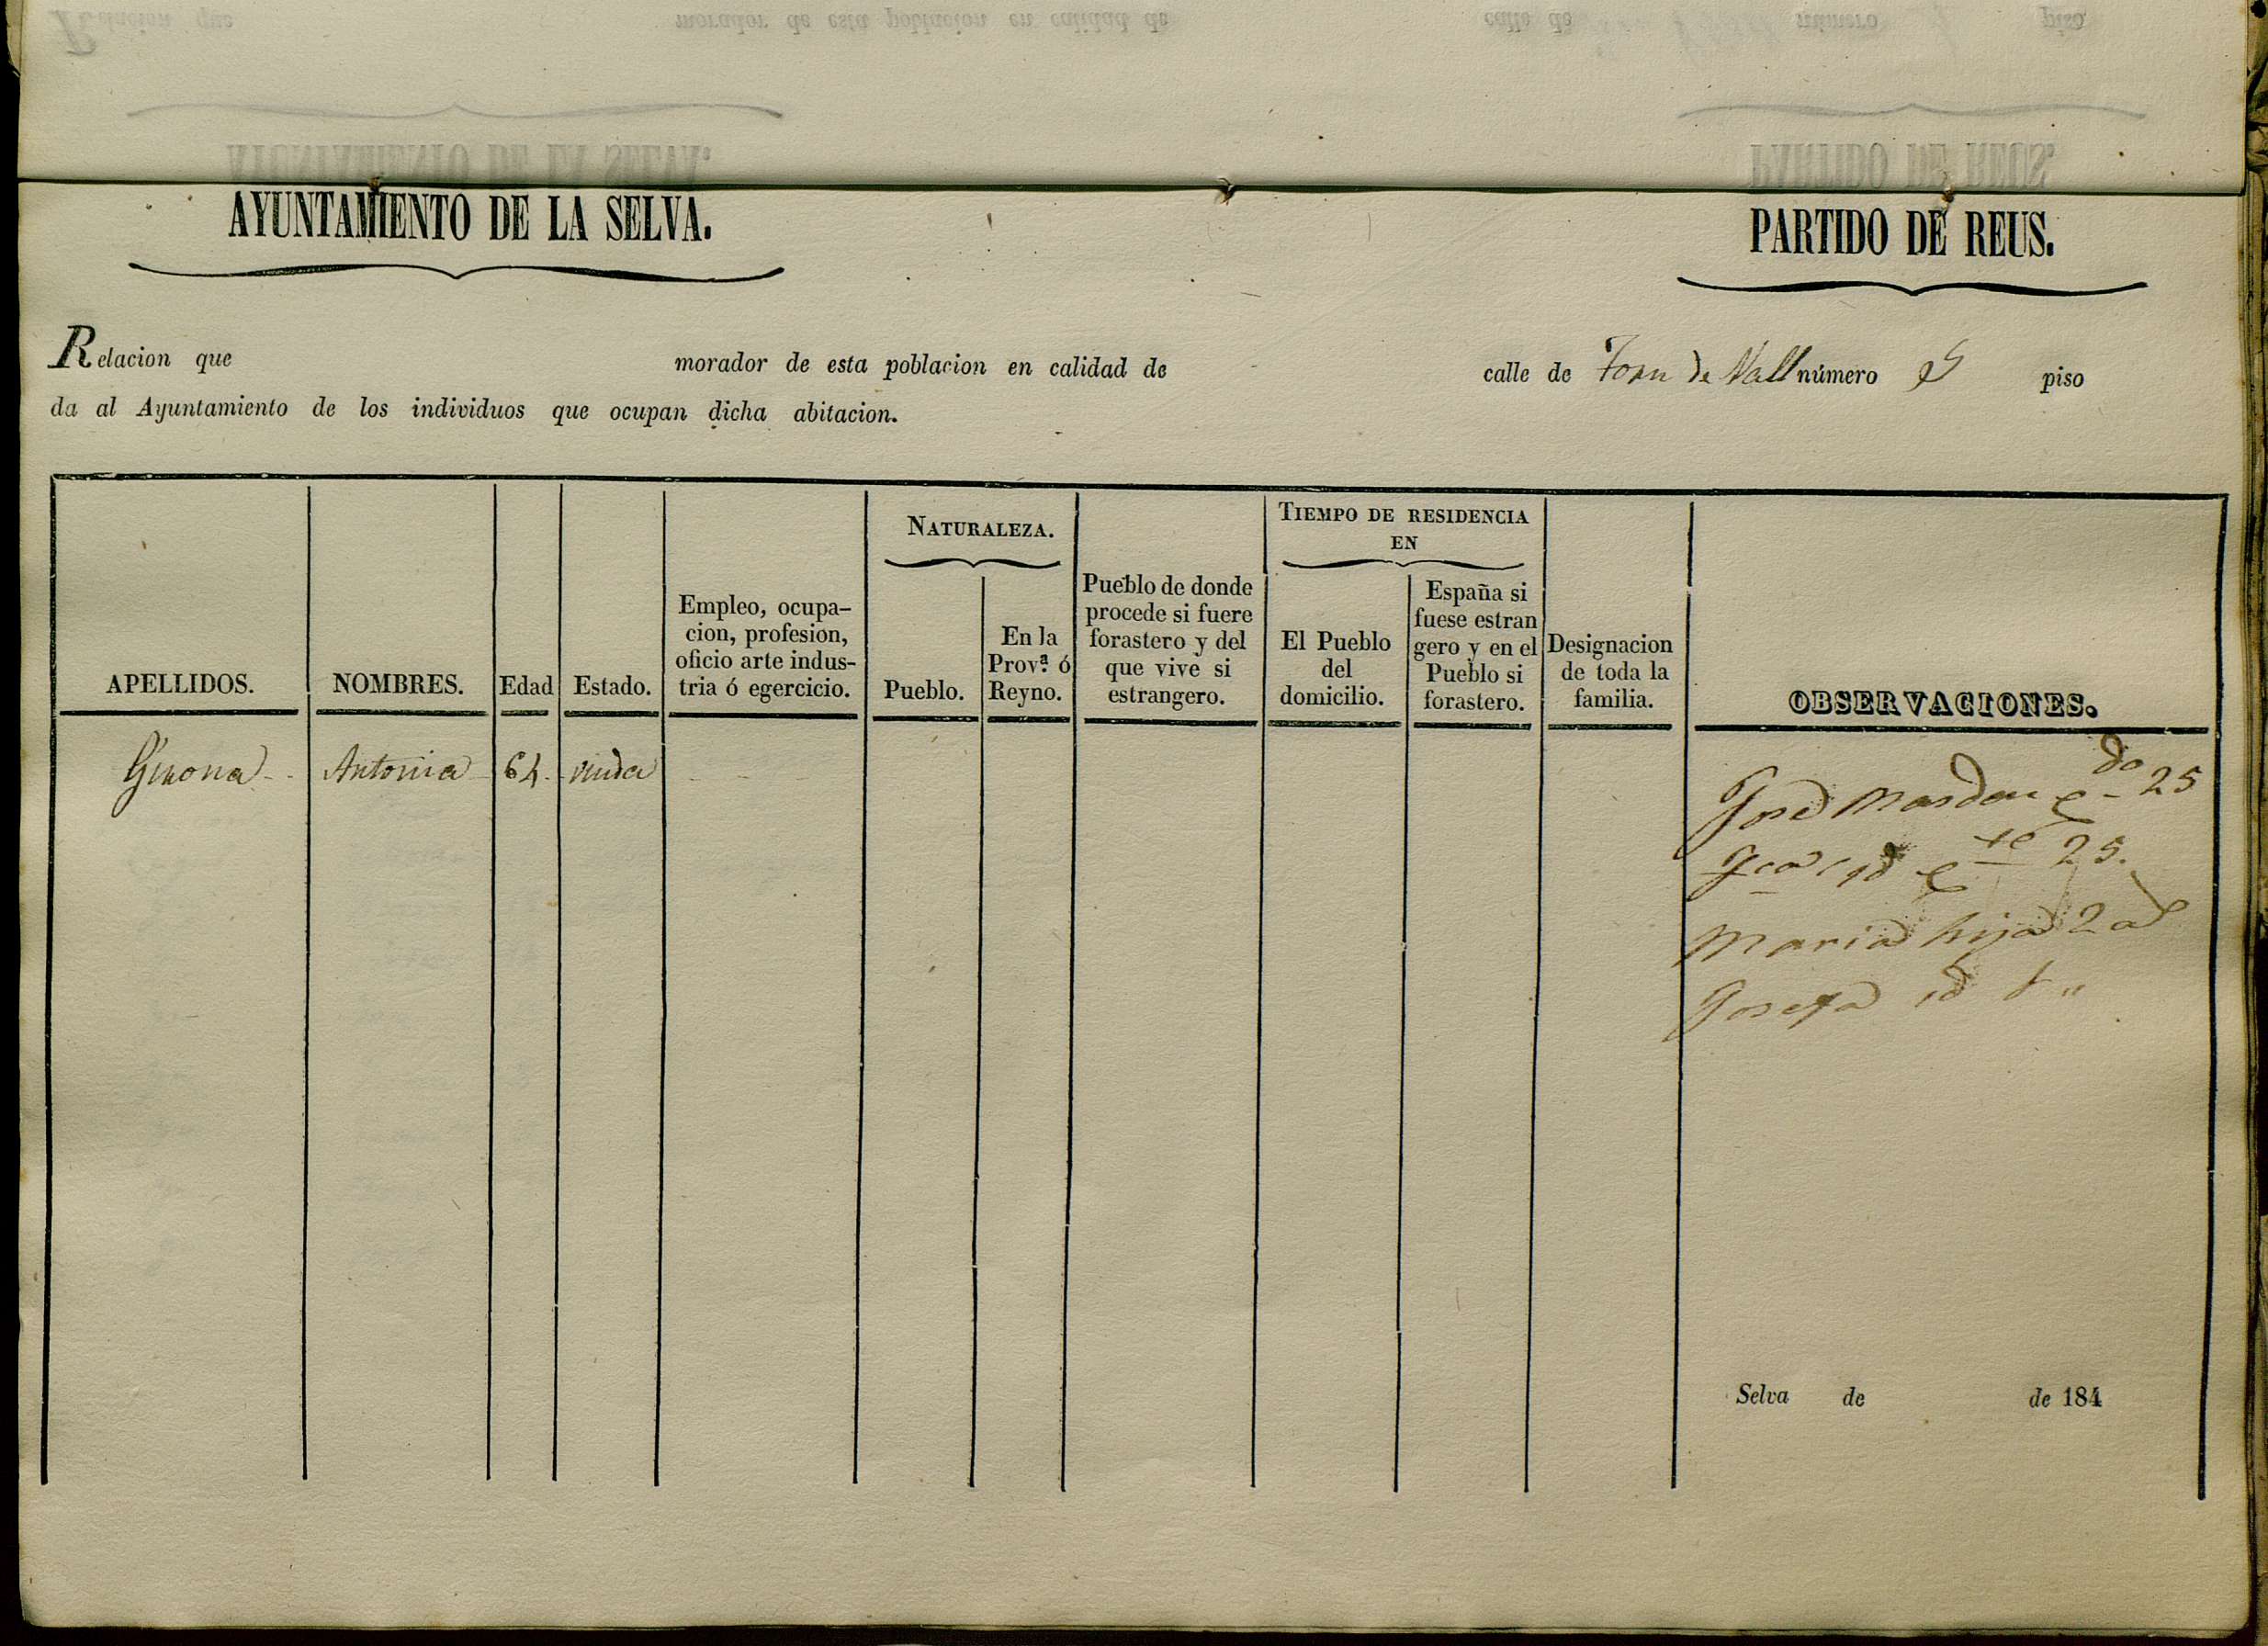 AYUNTAMIENTO DE LA SELVA.
PARTIDO DE REUS.
Relacion que morador de esta poblacion en calidad de calle de Forn de Vall número piso
da al Ayuntamiento de los individuos que ocupan dicha abitacion.
APELLIDOS.
NOMBRES.
Edad
Estado.
Empleo, ocupa-
cion, profesion,
oficio arte indus-
tria ó egercicio.
NATURALEZA.
Pueblo.
En la
Prov.ª ó
Reyno.
Pueblo de donde
procede si fuere
forastero y del
que vive si
estrangero.
TIEMPO DE RESIDENCIA
EN
El Pueblo
del
domicilio.
España si
fuese estran
gero y en el
Pueblo si
forastero.
Designacion
de toda la
familia.
OBSERVACIONES.
Girona Antonia 64 viuda
José Masdeu c.do 25
Fca id c.te 25.
Maria hija 2 a
Josefa id "
Selva de de 184